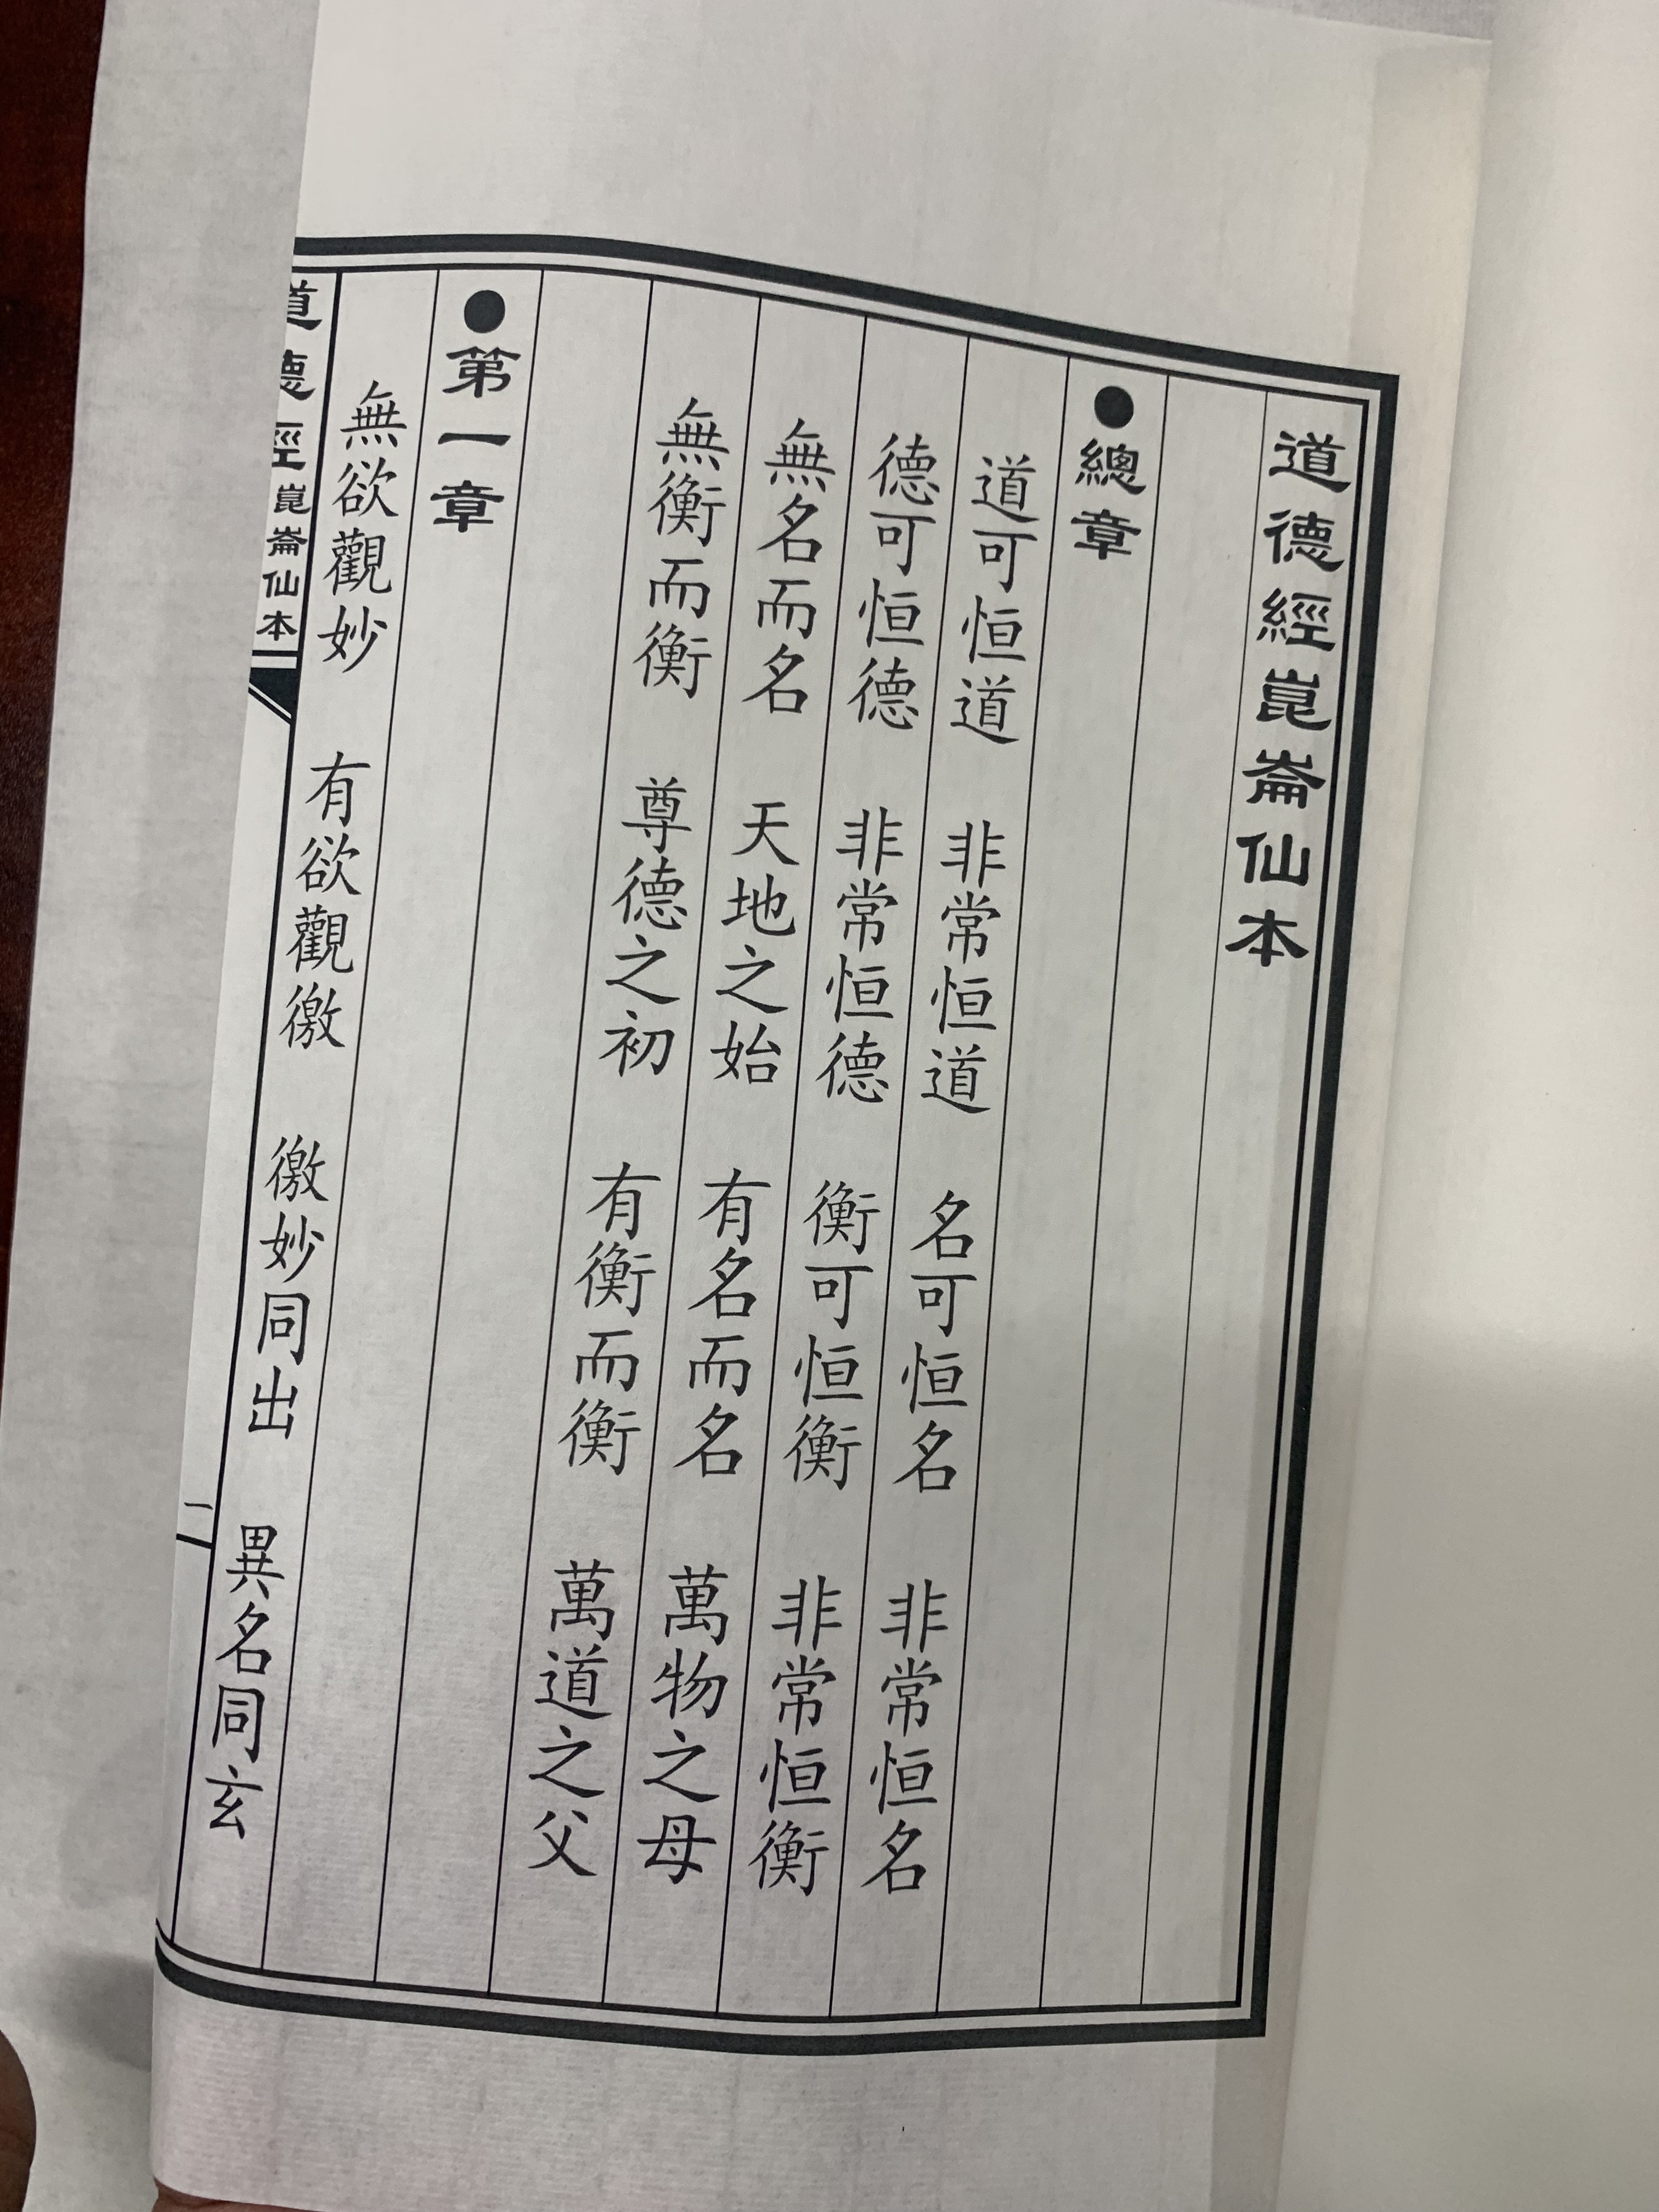 道德經崑崙仙本
●總章
道可恒道　非常恒道　名可恒名　非常恒名
德可恒德　非常恒德　衡可恒衡　非常恒衡
無名而名　天地之始　有名而名　萬物之母
無衡而衡　尊德之初　有衡而衡　萬道之父
●第一章
無欲觀妙　有欲觀徼　徼妙同出　異名同玄
道德經崑崙仙本
一